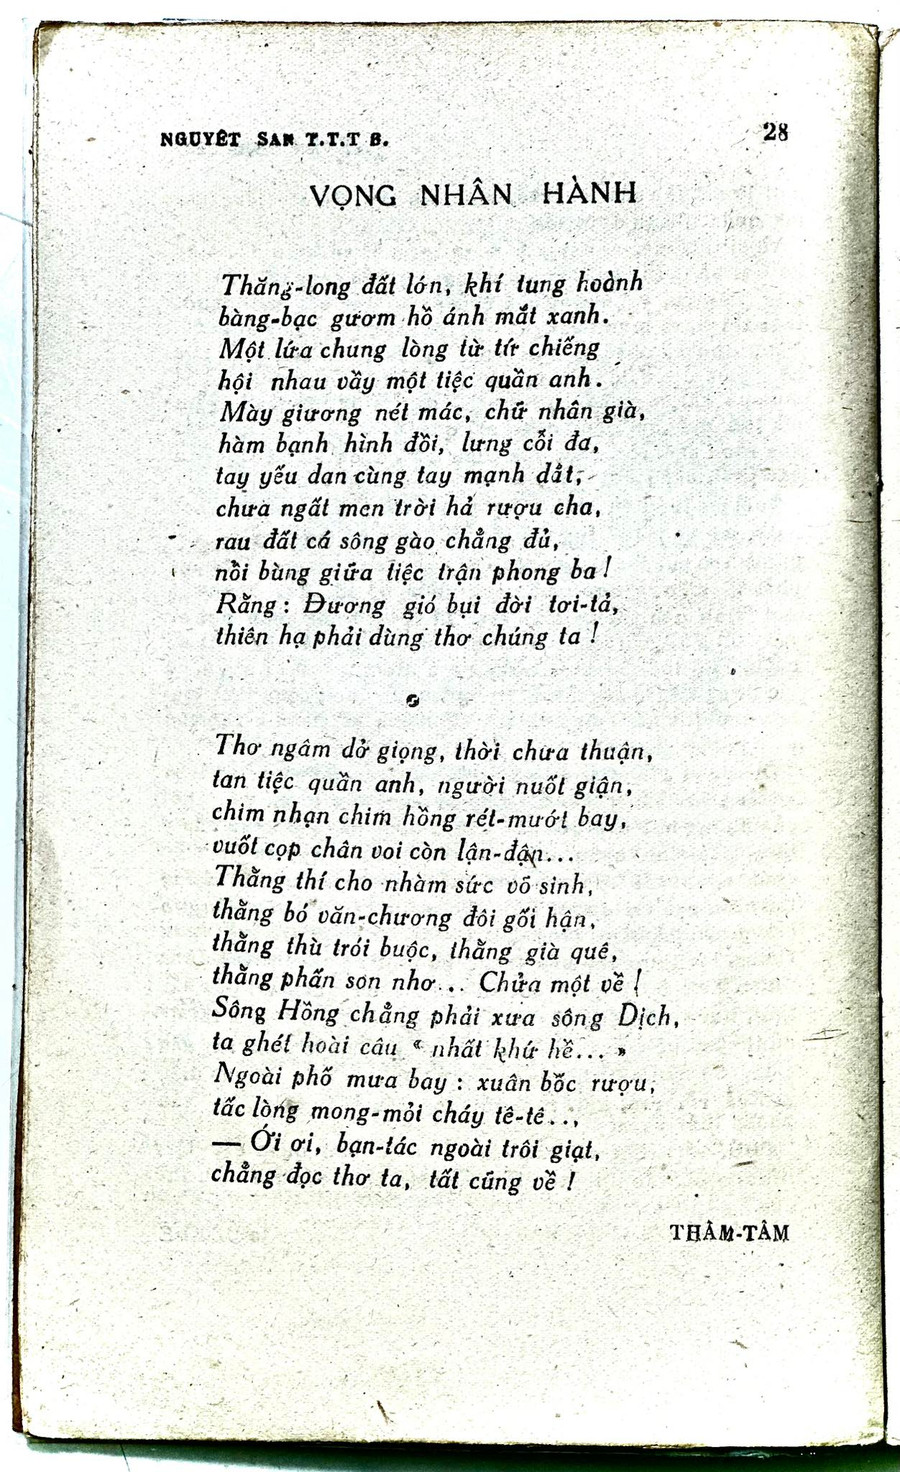 NGUYÊT SAN T.T.T B.
28
VỌNG NHÂN HÀNH
Thăng-long đất lớn, khí tung hoành
bàng-bạc gươm hồ ánh mắt xanh.
Một lứa chung lòng từ tứ chiếng
hội nhau vầy một tiệc quần anh.
Mày giương nét mác, chữ nhân già,
hàm bạnh hình đồi, lưng cỗi đa,
tay yếu dan cùng tay mạnh dắt,
chưa ngất men trời hả rượu cha,
rau đất cá sông gào chẳng đủ,
nồi bùng giữa tiệc trận phong ba!
Rằng: Đương gió bụi đời tơi-tả,
thiên hạ phải dùng thơ chúng ta!
Thơ ngâm dở giọng, thời chưa thuận,
tan tiệc quần anh, người nuốt giận,
chim nhạn chim hồng rét-mướt bay,
vuốt cọp chân voi còn lận-đận...
Thằng thí cho nhàm sức võ sinh,
thằng bó văn-chương đôi gối hận,
thằng thù trói buộc, thằng già quê,
thằng phấn son nhơ... Chửa một về!
Sông Hồng chẳng phải xưa sông Dịch,
ta ghét hoài câu « nhất khứ hề... »
Ngoài phố mưa bay: xuân bốc rượu,
tấc lòng mong-mỏi cháy tê-tê..,
— Ới ơi, bạn-tác ngoài trôi giạt,
chẳng đọc thơ ta, tất cũng về!
THÂM-TÂM